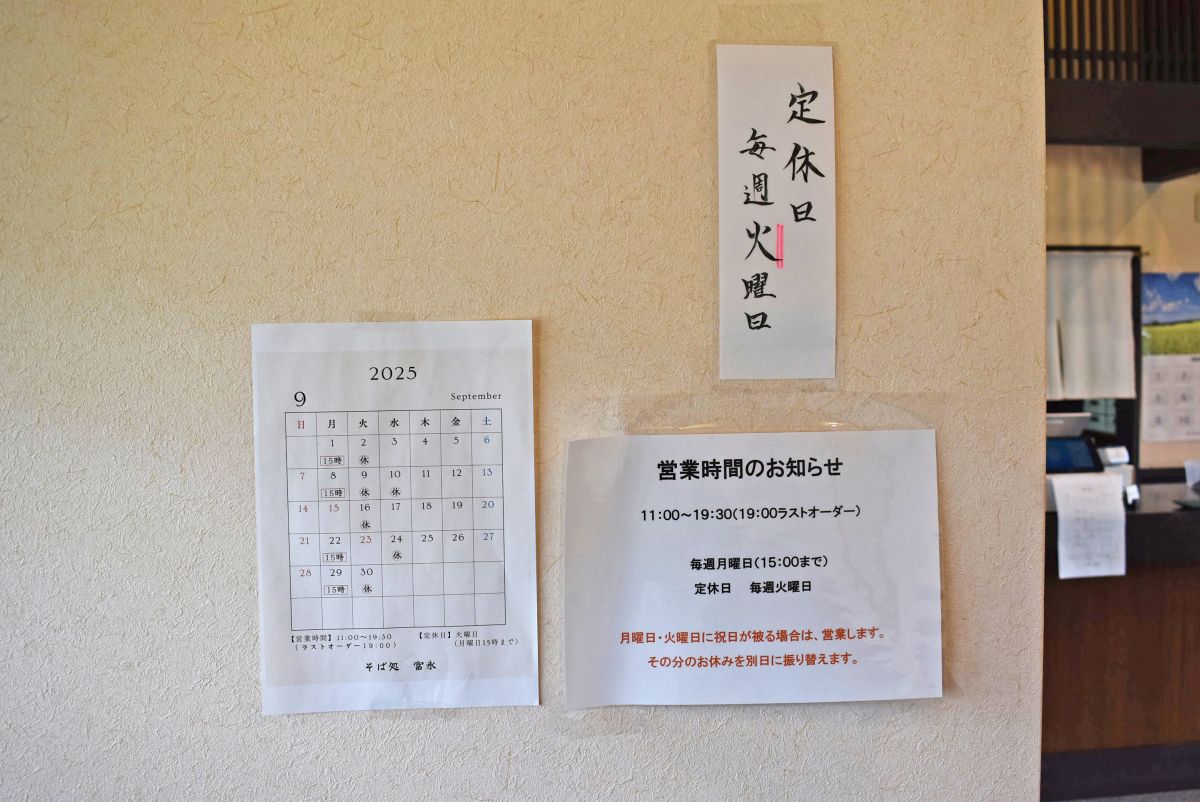 定休日
毎週火曜日
2025
9 September
日 月 火 水 木 金 土
1 2 3 4 5 6
15時 休
7 8 9 10 11 12 13
15時 休 休
14 15 16 17 18 19 20
休
21 22 23 24 25 26 27
15時 休
28 29 30
15時 休
【営業時間】11:00〜19:30 【定休日】火曜日
(ラストオーダー19:00) (月曜日15時まで)
そば処 富永
営業時間のお知らせ
11:00〜19:30(19:00ラストオーダー)
毎週月曜日(15:00まで)
定休日 毎週火曜日
月曜日・火曜日に祝日が被る場合は、営業します。
その分のお休みを別日に振り替えます。